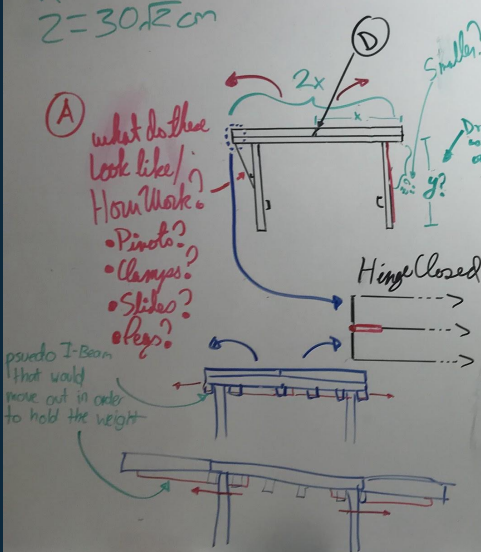 2=30√2 cm
D
Smaller?
2x
x
A
what do these
Look like/
How Work?
• Pivots?
• Clamps?
• Slides?
• Pegs?
y?
Hinge Closed
psuedo I-Beam
that would
move out in order
to hold the weight